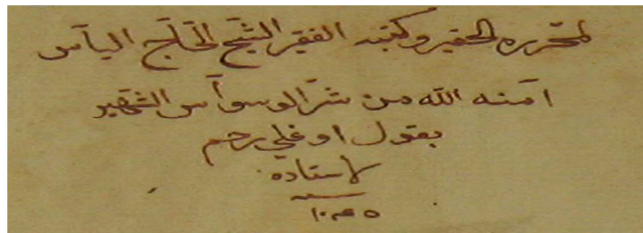 لمحرره الحقير وكتبه الفقير الشيخ الحاج الياس
آمنه الله من شر الوسواس الشهير
بقول اوغلي رحم
لاستاده
سنه
١٠٤٥